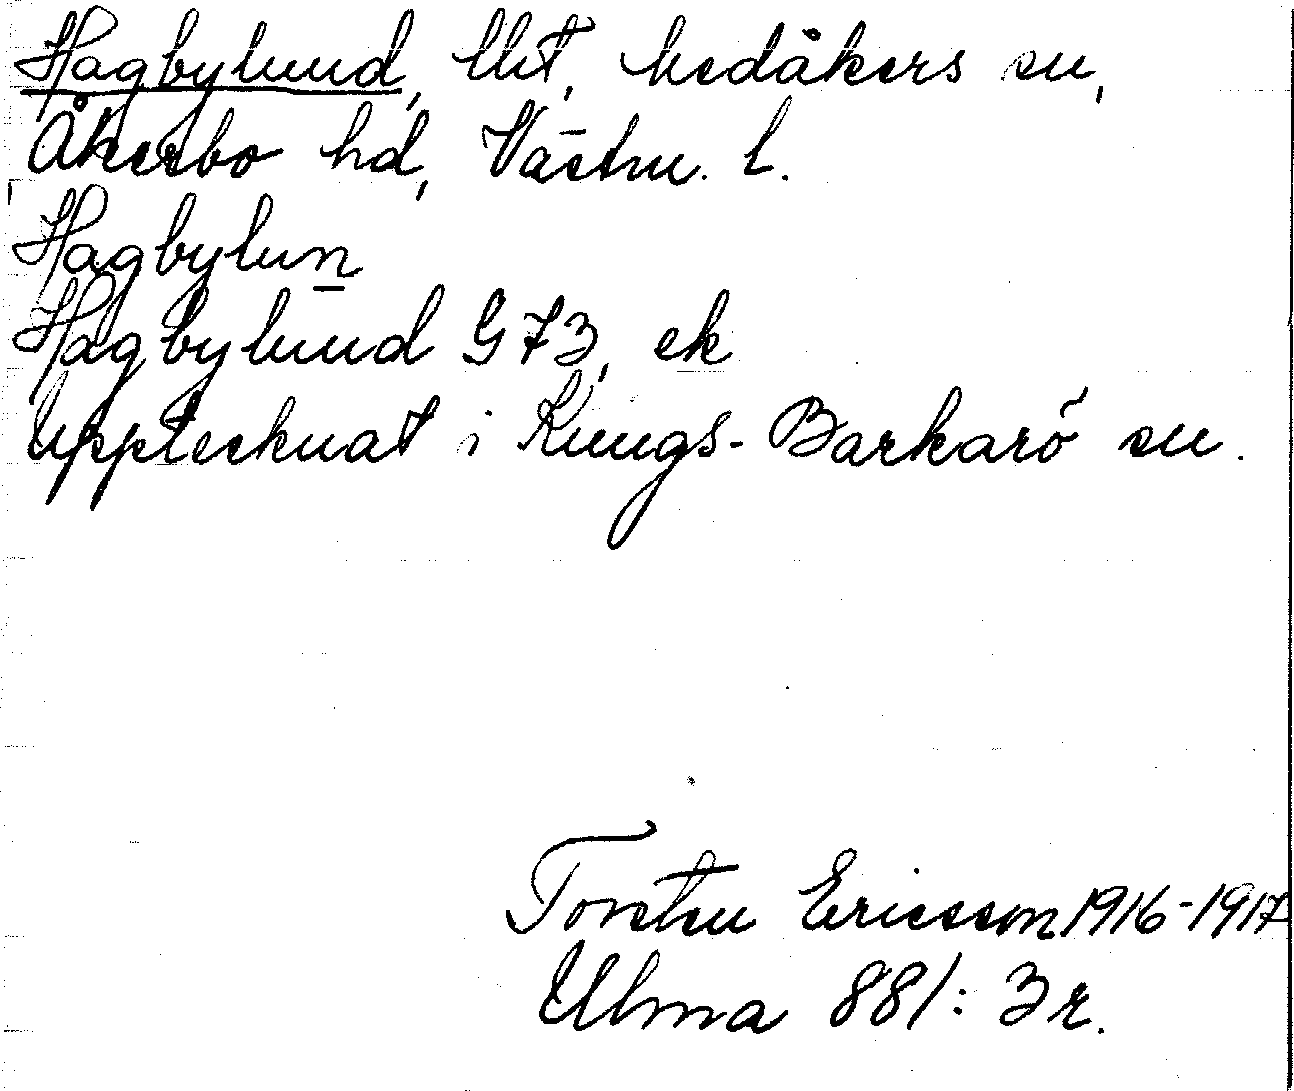 Hagbylund, lht, Medåkers sn,
Åkerbo hd, Västm. l.
Hagbylun
Hagbylund G73, ek
Upptecknat i Kungs-Barkarö sn.
Torsten Ericsson 1916-1917
Ulma 881: 3 r.